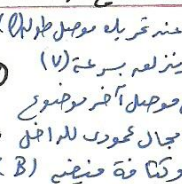 عند تحريك موصل طوله (l)
ينزلق بسرعة (v)
موصل آخر موضوع
مجال عمودى للداخل
وكثافة فيضه (B)